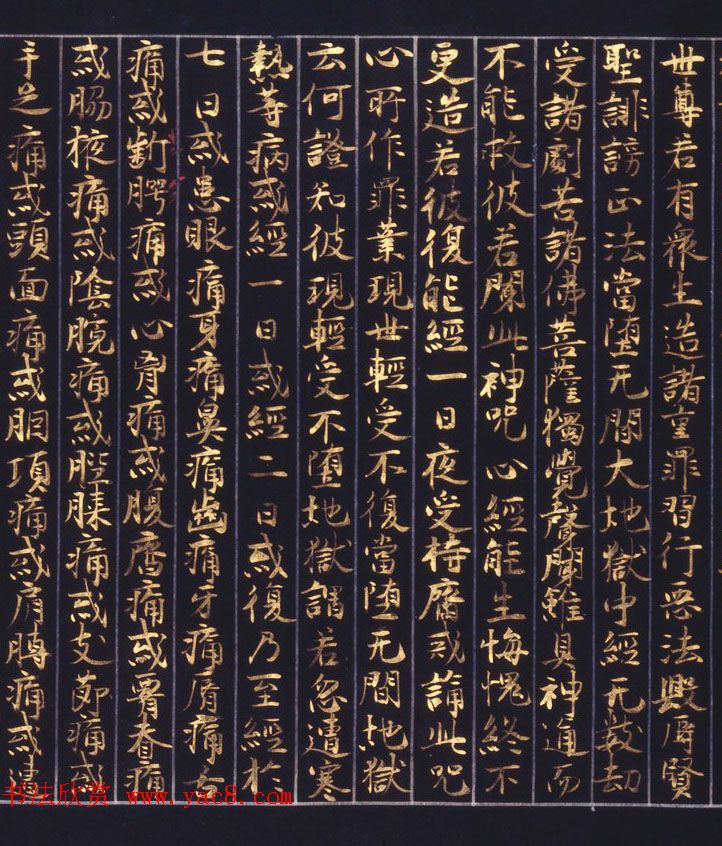 世尊若有衆生造諸重罪習行惡法毀辱賢
聖誹謗正法當堕无間大地獄中經无數劫
受諸劇苦諸佛菩薩獨覺聲聞雖具神通而
不能救彼若聞此神呪心經能生悔愧終不
更造若彼復能經一日夜受持齋戒誦此呪
心所作罪業現世輕受不復當堕无間地獄
云何證知彼現輕受不堕地獄謂若忽遭寒
熱等病或經一日或經二日或復乃至經於
七日或患眼痛耳痛鼻痛齒痛牙痛脣痛舌
痛或齗腭痛或心胷痛或腹齊痛或脊痛
或脇掖痛或陰腕痛或髀膝痛或支節痛或
手足痛或頭面痛或胭項痛或肩膊痛或
书法欣赏 www.yac8.com